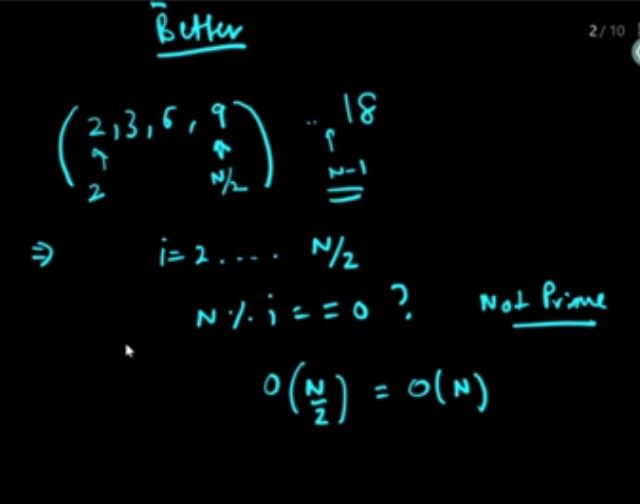 Better
2/10
(2,3,6,9) .. 18
2 N/2 N-1
⇒ i=2.... N/2
N % i == 0 ? Not Prime
O(N/2) = O(N)